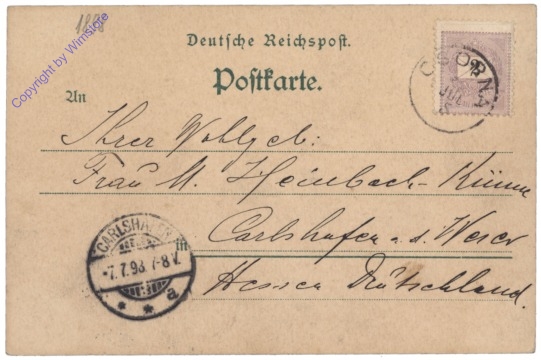 1898
Copyright by Wirnstore
Deutsche Reichspost.
Postkarte.
An
CSORNA
JUL
Ihrer Wohlgeb:
Frau M. Heinbach-Kümm
CARLSHAFEN
7.7.98. 7-8V.
* * a
in
Carlshafen a. d. Weser
Hessen Deutschland.